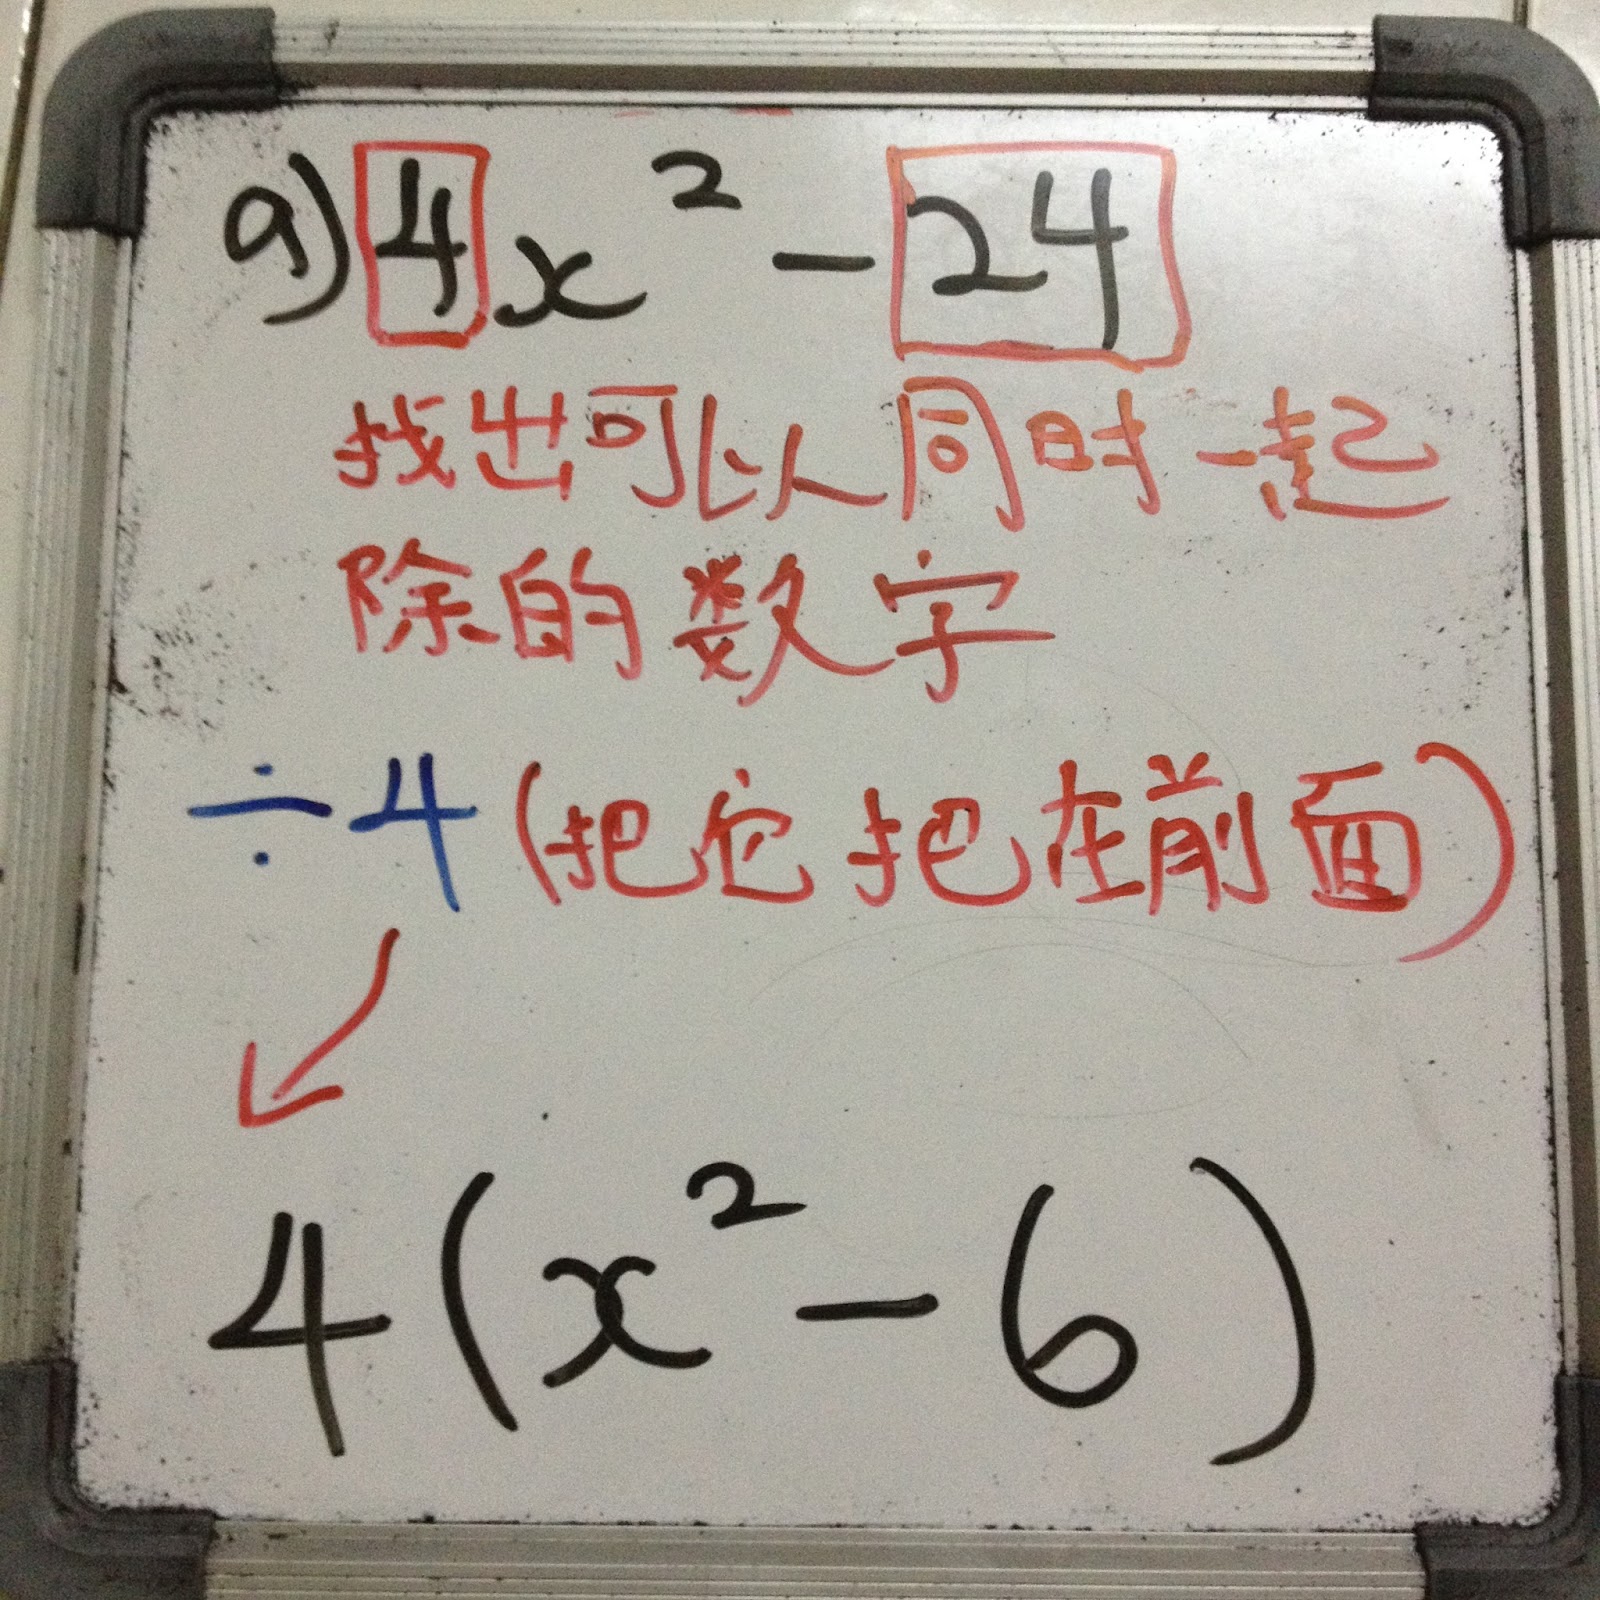 a) 4x² - 24
找出可以同时一起
除的数字
÷4 (把它把在前面)
4(x² - 6)